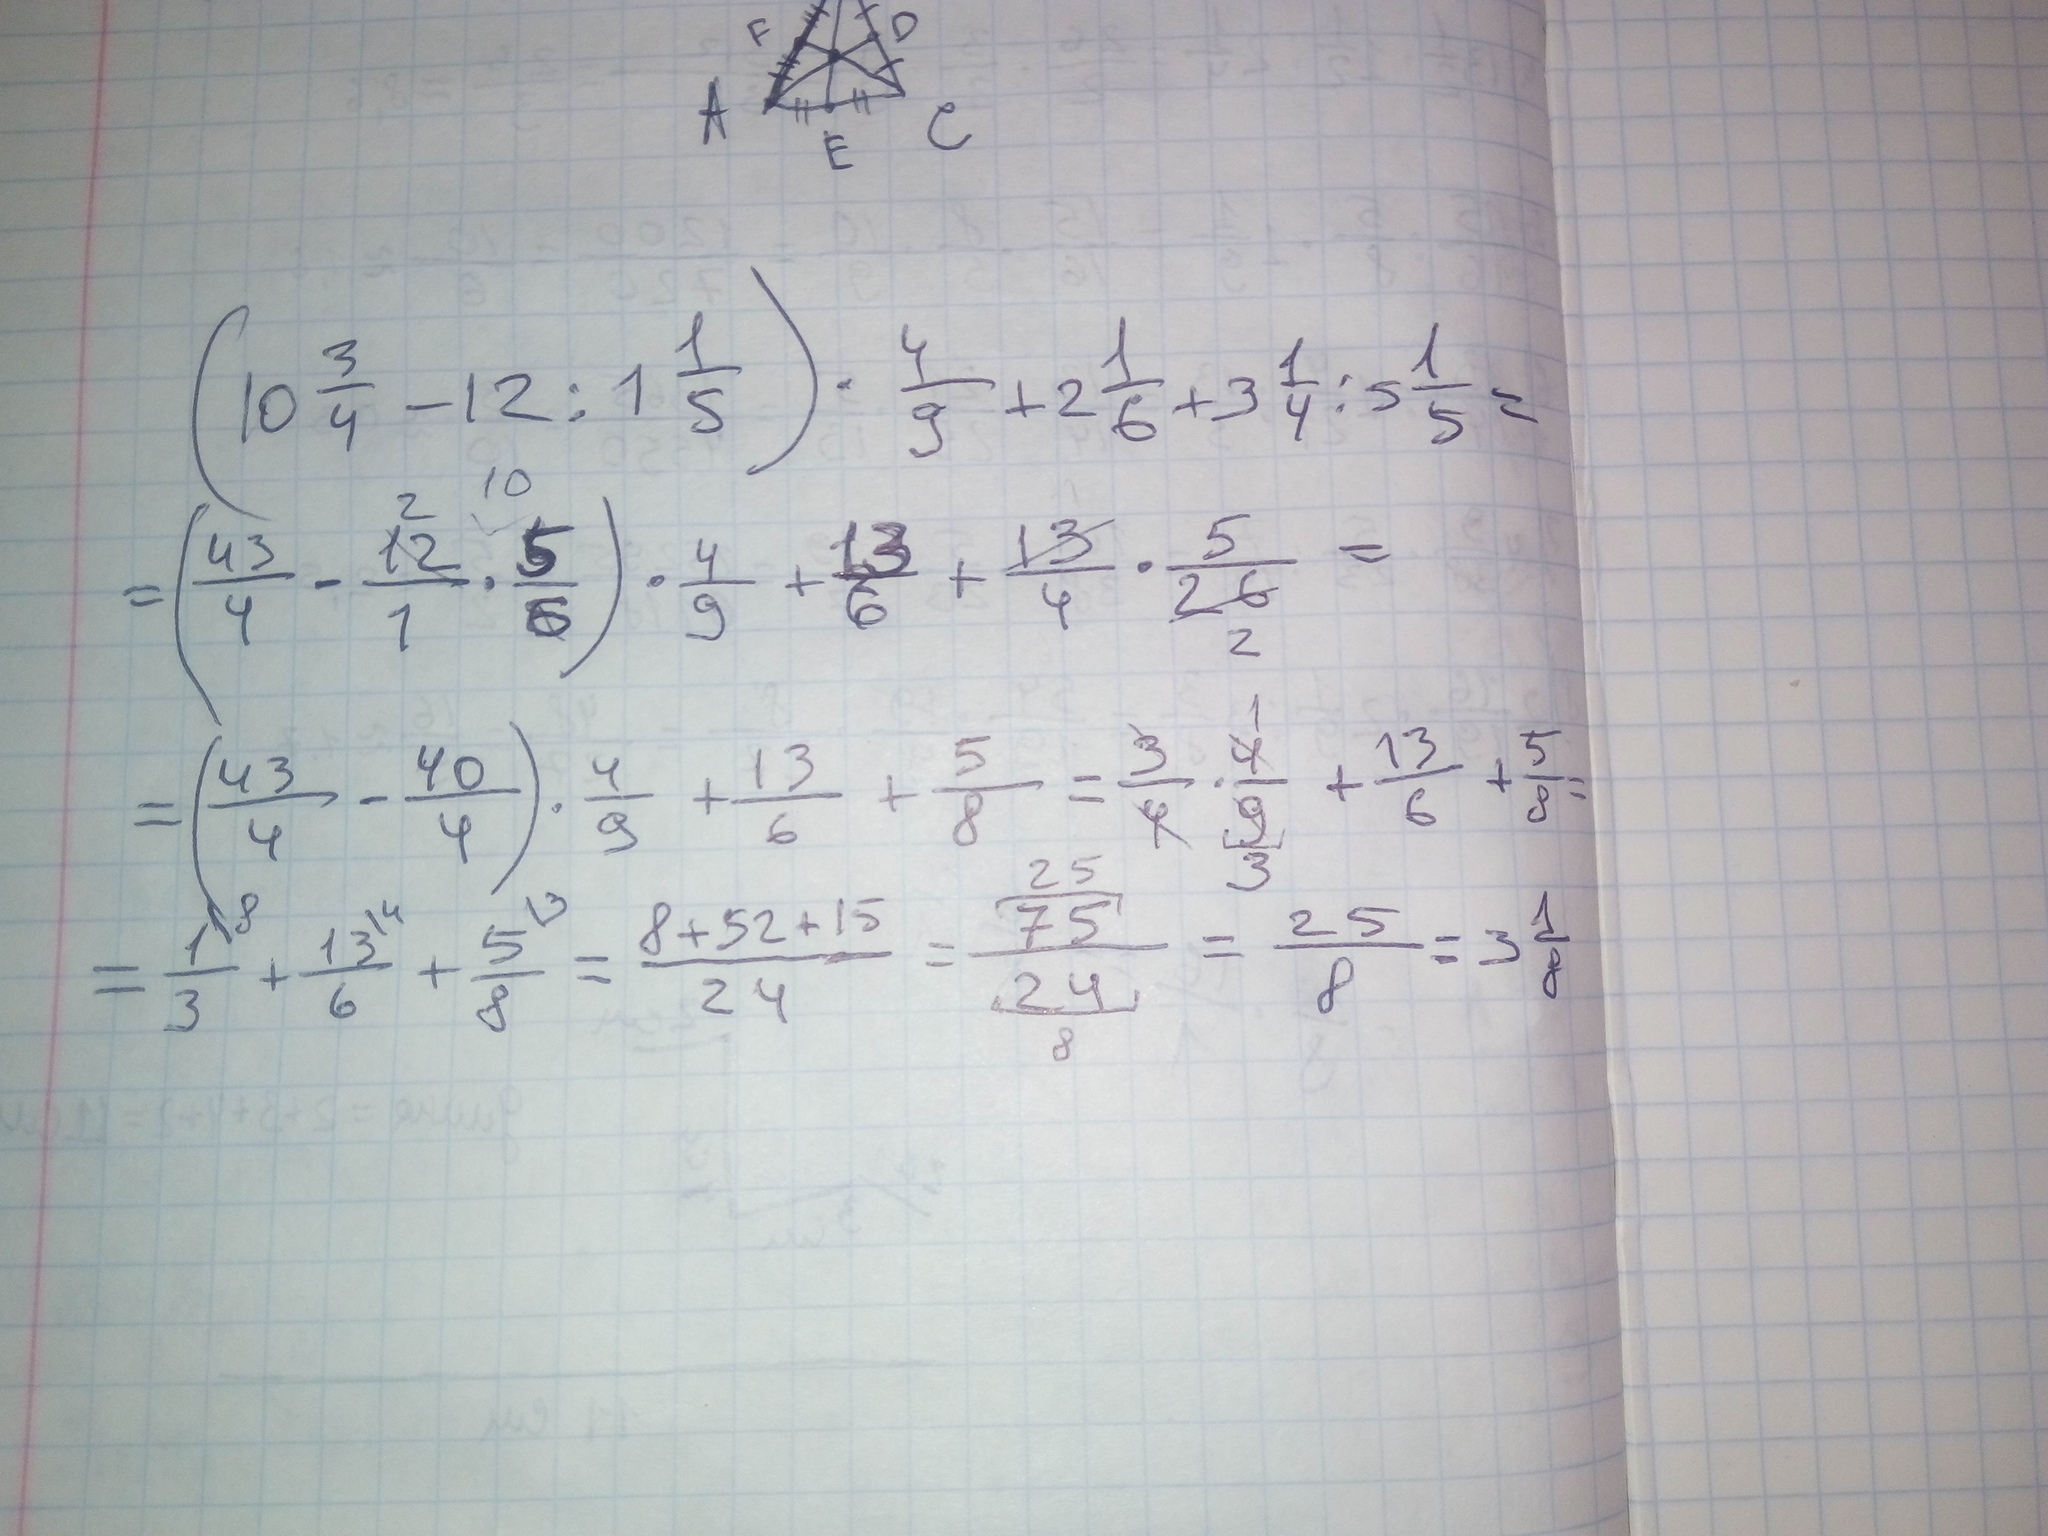 F D
A E C
(10 3/4 - 12 : 1 1/5) · 4/9 + 2 1/6 + 3 1/4 : 5 1/5 =
2 10
= (43/4 - 12/1 · 5/6) · 4/9 + 13/6 + 13/4 · 5/26 =
2
1
= (43/4 - 40/4) · 4/9 + 13/6 + 5/8 = 3/4 · 4/9 + 13/6 + 5/8 =
3
8 25
= 1/3 + 13/6 + 5/8 = 8+52+15/24 = 75/24 = 25/8 = 3 1/8
8